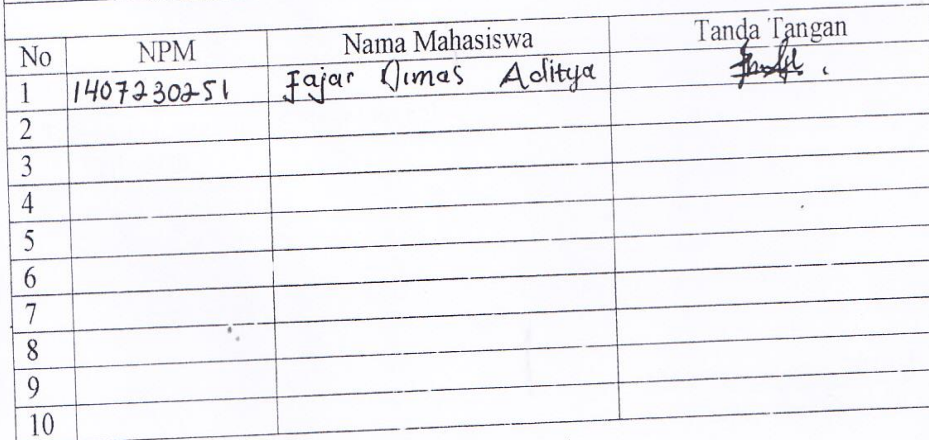 No NPM Nama Mahasiswa Tanda Tangan
1 1407230251 Fajar Dimas Aditya
2
3
4
5
6
7
8
9
10